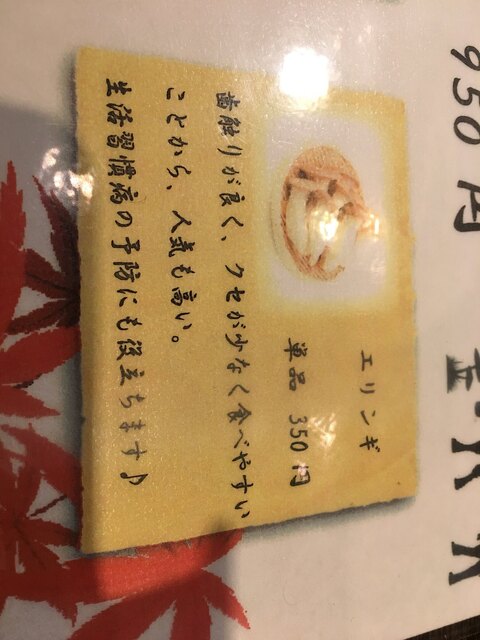 950円
エリンギ
単品 350円
歯触りが良く、クセが少なく食べやすい
ことから、人気も高い。
生活習慣病の予防にも役立ちます♪